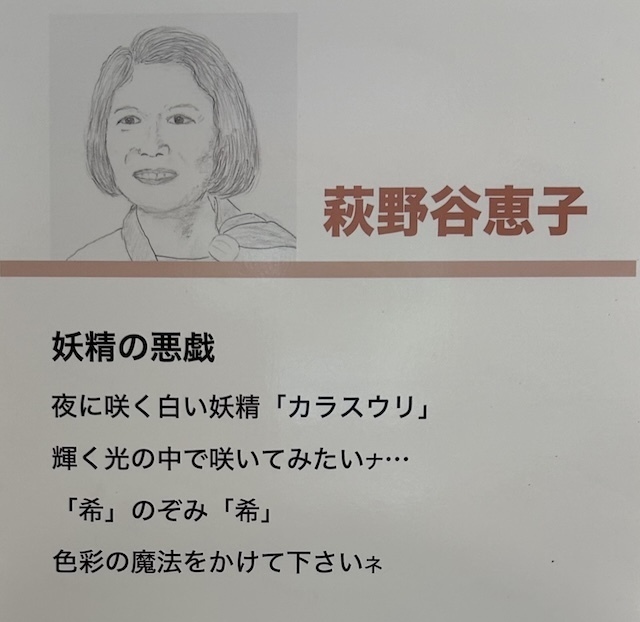 萩野谷恵子
妖精の悪戯
夜に咲く白い妖精「カラスウリ」
輝く光の中で咲いてみたいナ…
「希」のぞみ「希」
色彩の魔法をかけて下さいネ